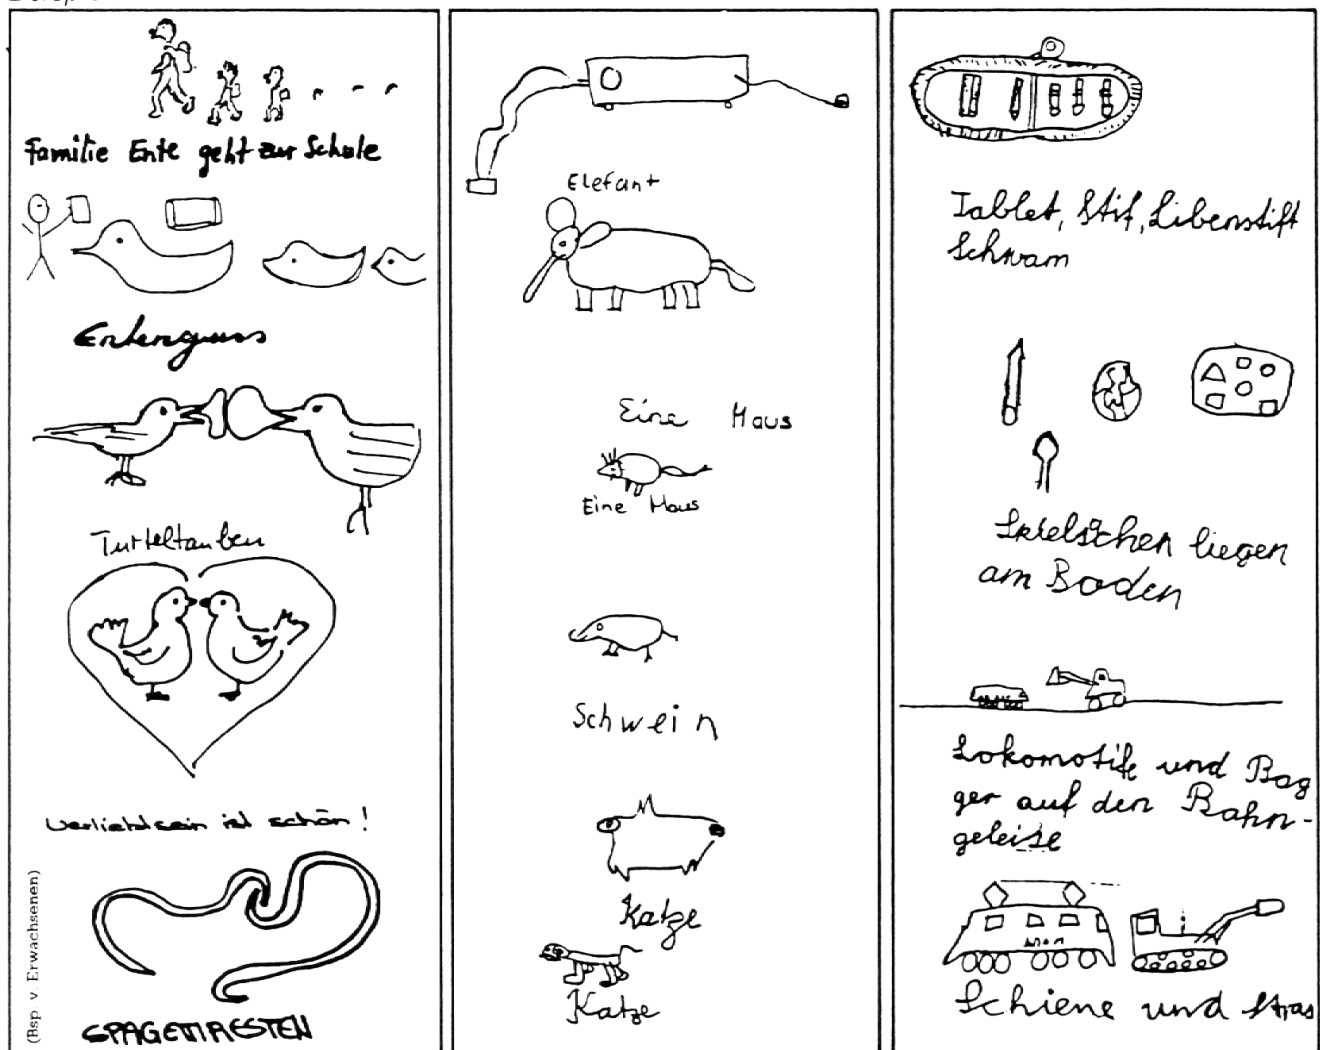 Familie Ente geht zur Schule
Entenguss
Turteltauben
verliebtsein ist schön!
SPAGETTIRESTEN
(Bsp. v. Erwachsenen)
Elefant
Eine Maus
Eine Maus
Schwein
Katze
Katze
Tablet, Stif, Libenstift
Schwam
liegen
am Boden
Lokomotife und Bag
ger auf den Bahn-
geleise
Schiene und Stras